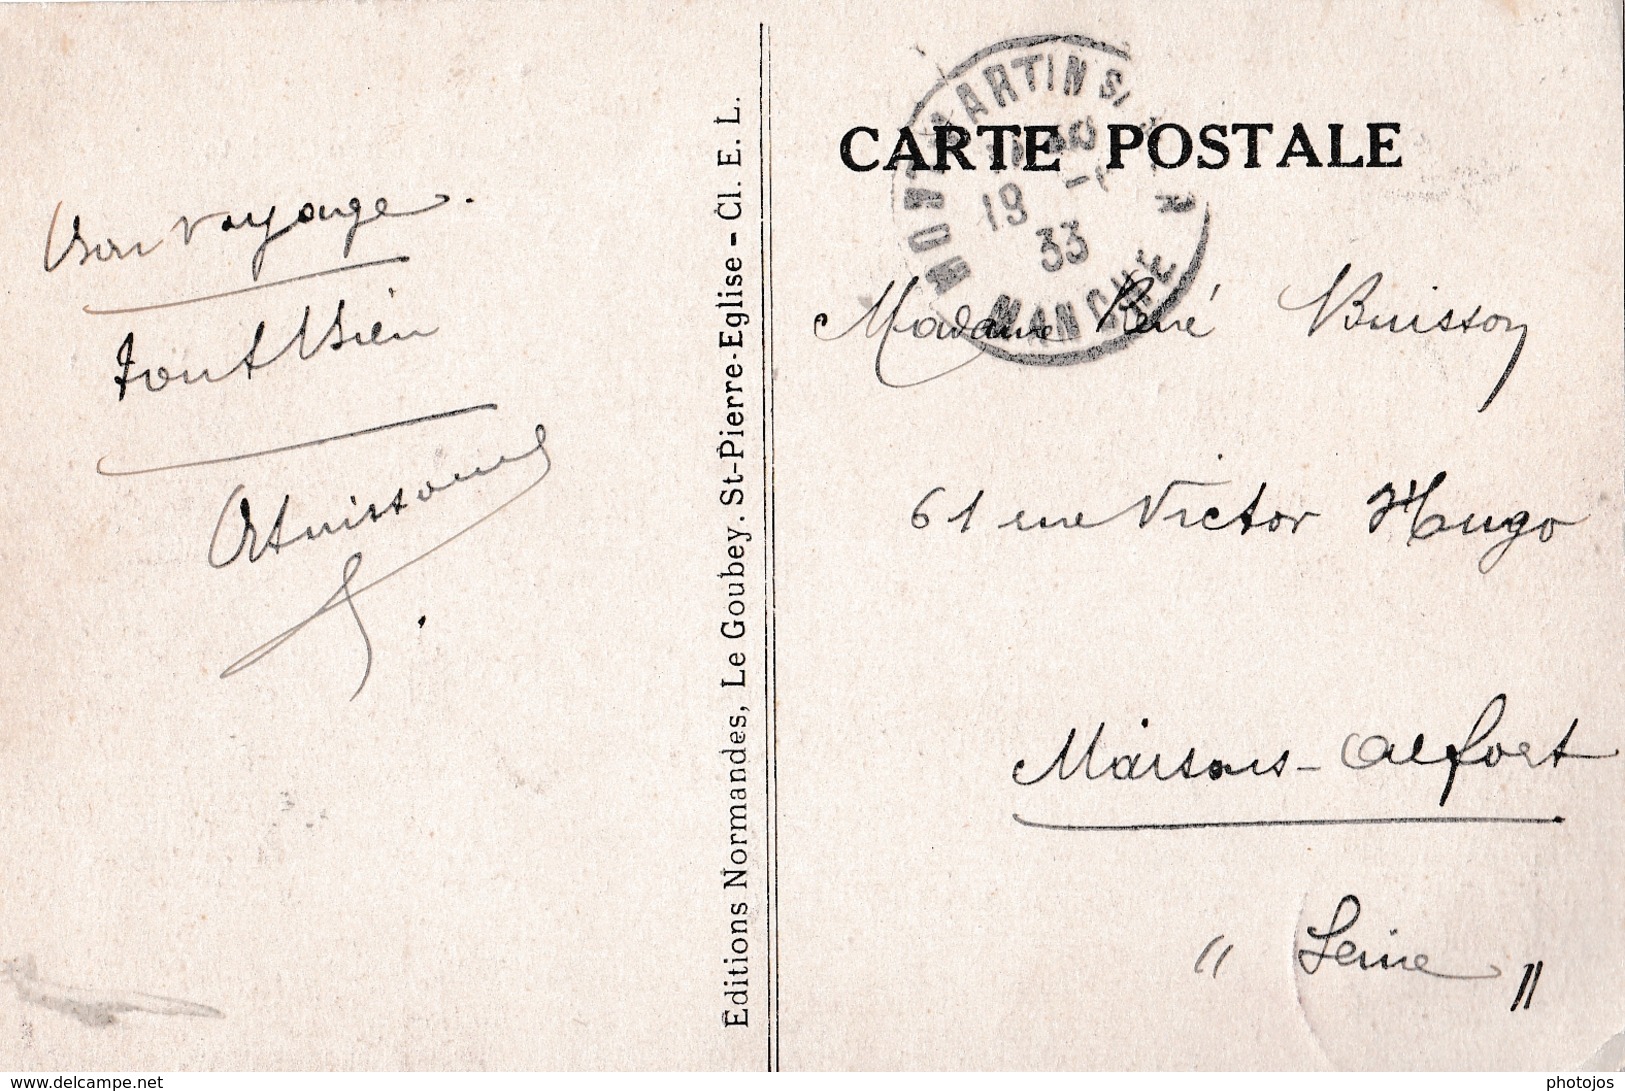 CARTE POSTALE
MANCHE
33
Bon voyage.
Tout Bien
Editions Normandes, Le Goubey. St-Pierre-Eglise - Cl. E. L.
Madame René Buisson
61 rue Victor Hugo
Maisons-Alfort
"Seine"
www.delcampe.net
photojos